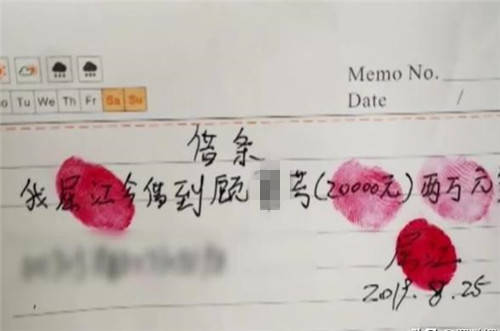 Memo No.
Tu We Th Fr Sa Su
Date /
借条
我屈江今借到顾 芳(20000元)两万元
屈江
2019.8.25